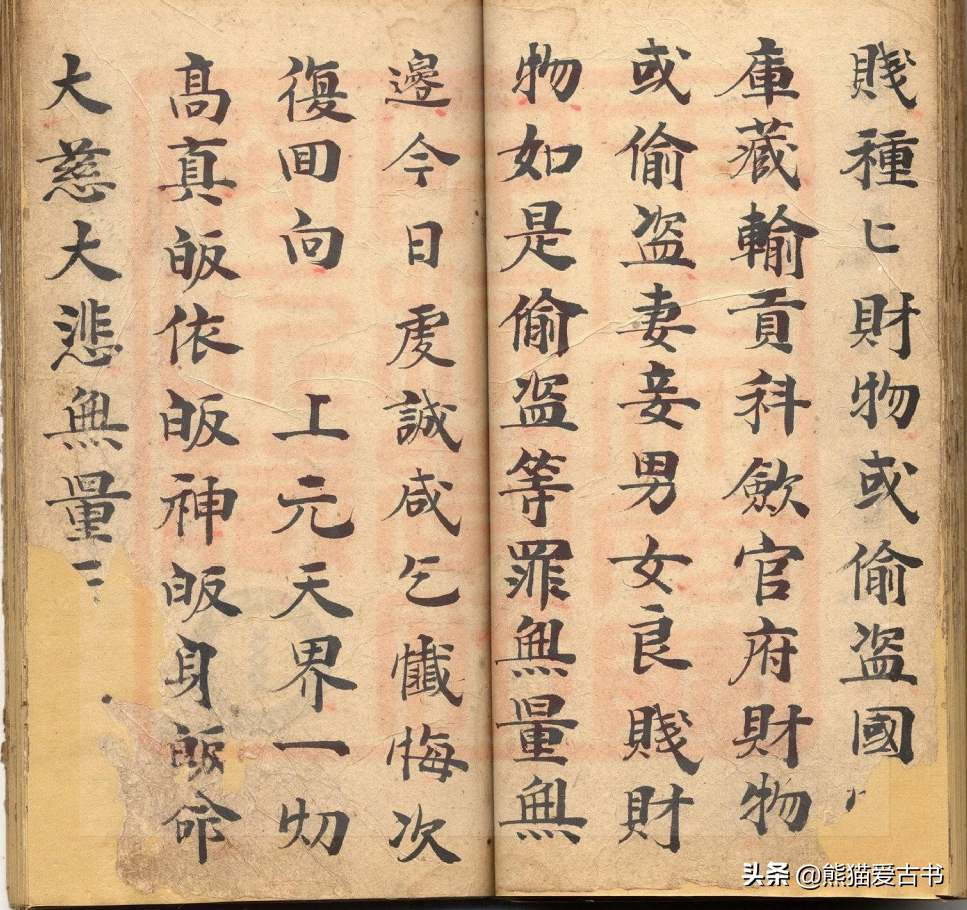 賤種匕財物或偷盗國
庫藏輸貢科歛官府財物
或偷盗妻妾男女良賤財
物如是偷盗等罪無量無
邊今日虔誠咸乞懺悔次
復囬向 上元天界一切
髙真皈依皈神皈身皈命
大慈大悲無量
头条 @熊猫爱古书